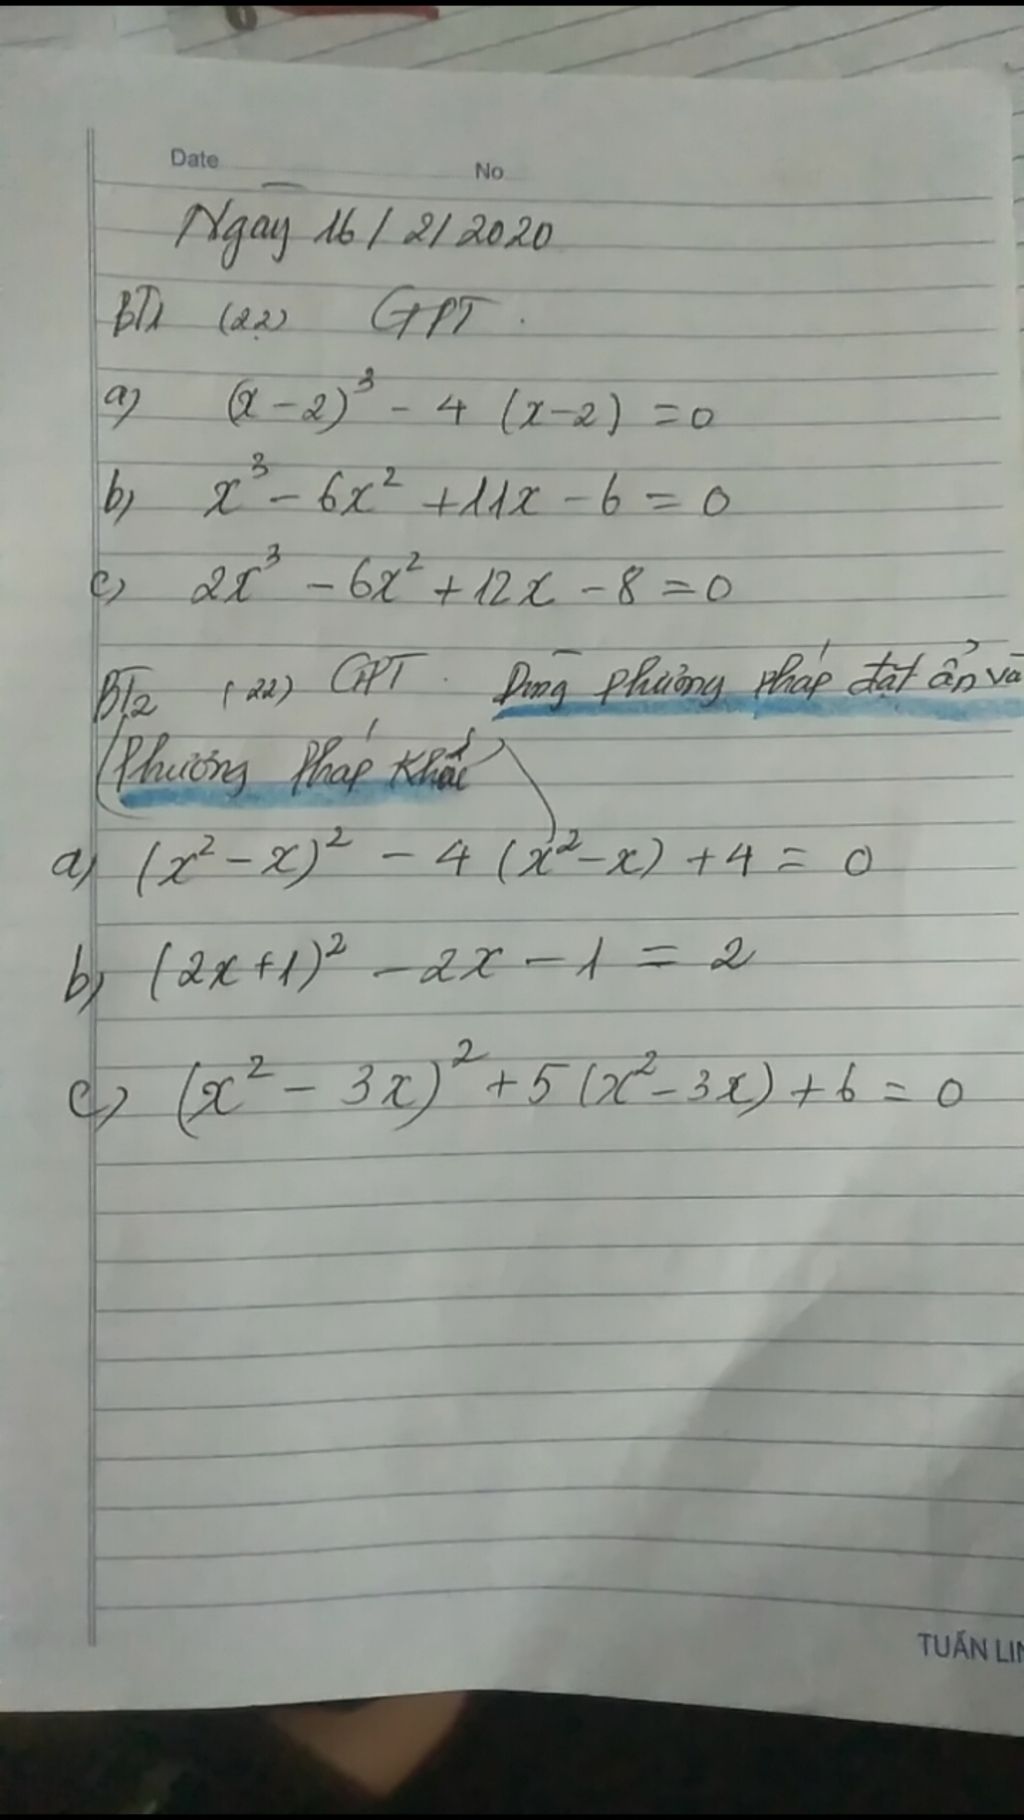 Date No
Ngày 16/2/2020
BT1 (22) GPT.
a) (x-2)³ - 4 (x-2) = 0
b) x³ - 6x² + 11x - 6 = 0
c) 2x³ - 6x² + 12x - 8 = 0
BT2 (22) GPT. Dùng phương pháp đặt ẩn và
(Phương Pháp Khác)
a) (x² - x)² - 4 (x² - x) + 4 = 0
b) (2x+1)² - 2x - 1 = 2
c) (x² - 3x)² + 5 (x² - 3x) + 6 = 0
TUẤN LIN